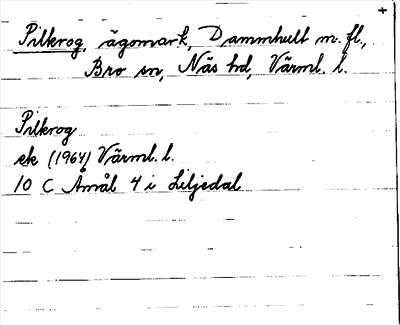 +
Pilkrog, ägomark, Dammhult m. fl.,
Bro sn, Näs hd, Värml. l.
Pilkrog
ek (1964) Värml. l.
10 C Åmål 4 i Liljedal